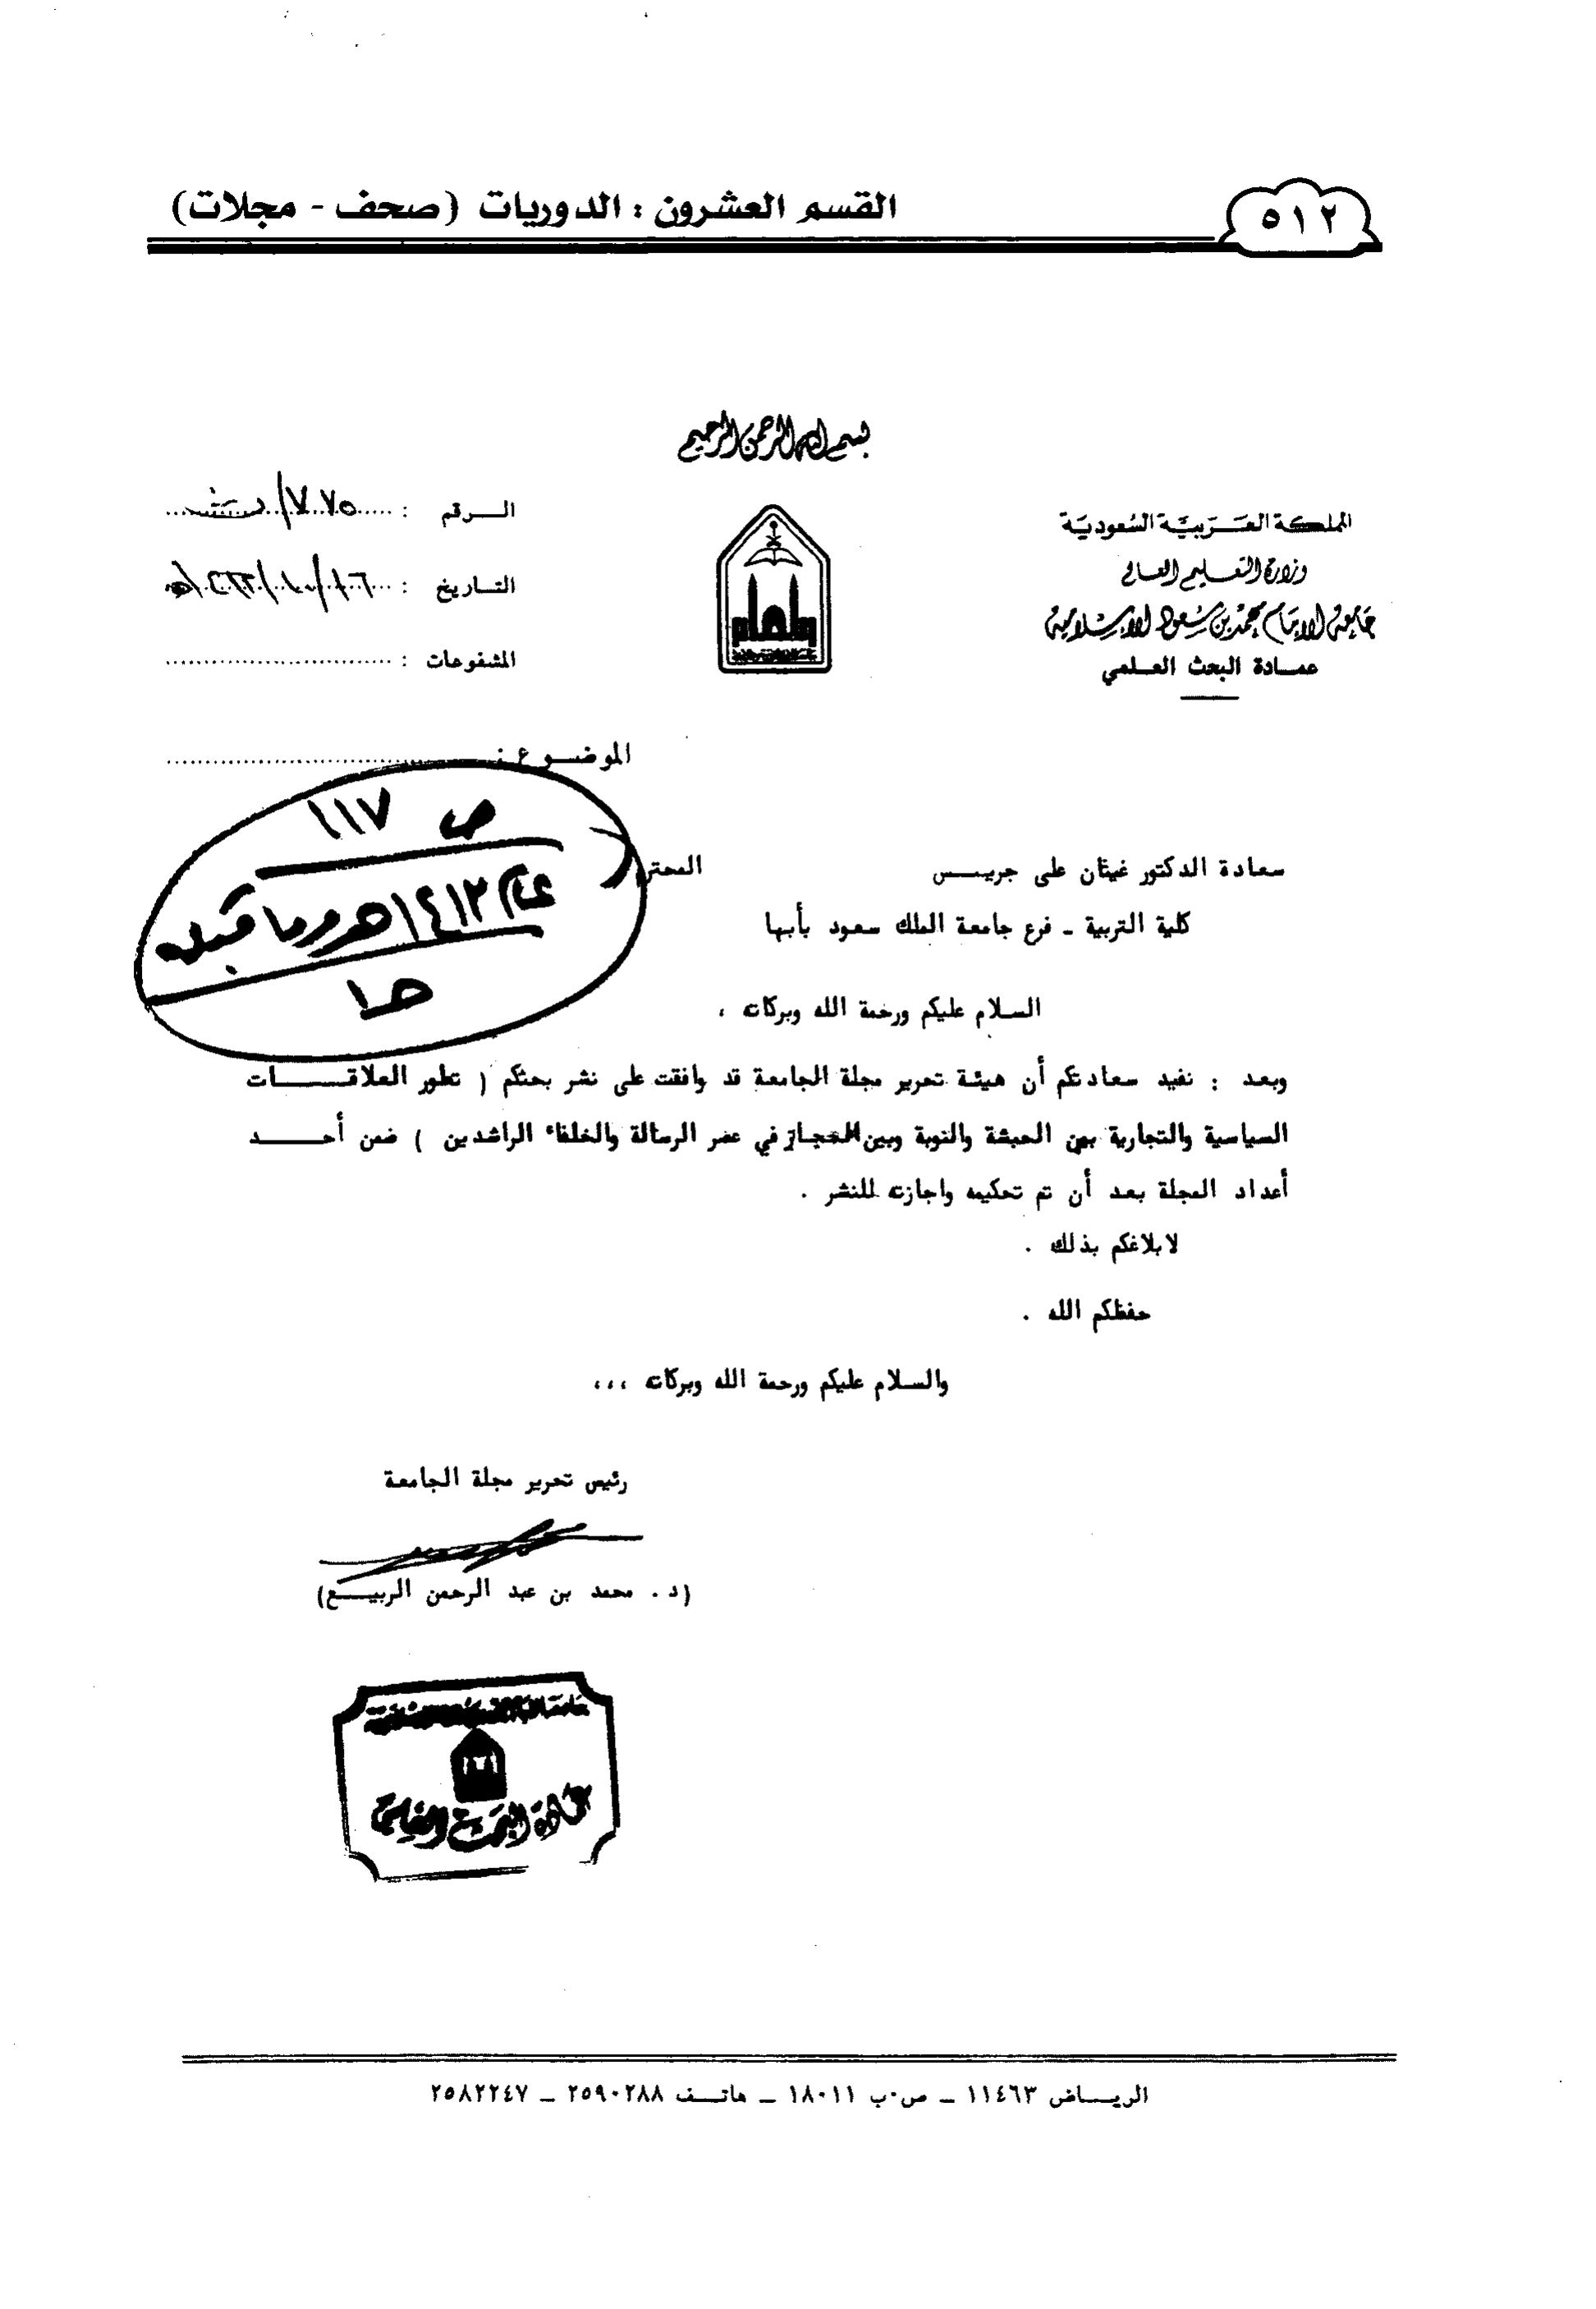 ٥١٢
القسم العشرون : الدوريات (صحف - مجلات)
بسم الله الرحمن الرحيم
المملكة العربية السعودية
وزارة التعليم العالي
جامعة الإمام محمد بن سعود الإسلامية
عمادة البحث العلمي
الرقم :
التاريخ :
المشفوعات :
الموضوع :
ص ١١٧
عام ١٤١٢هـ وما قبله
سعادة الدكتور غيثان على جريس المحترم
كلية التربية ـ فرع جامعة الملك سعود بأبها
السلام عليكم ورحمة الله وبركاته ،
وبعد : نفيد سعادتكم أن هيئة تحرير مجلة الجامعة قد وافقت على نشر بحثكم ( تطور العلاقات
السياسية والتجارية بين الحبشة والنوبة وبين الحجاز في عصر الرسالة والخلفاء الراشدين ) ضمن أحد
أعداد المجلة بعد أن تم تحكيمه واجازته للنشر .
لابلاغكم بذلك .
حفظكم الله .
والسلام عليكم ورحمة الله وبركاته ،،،
رئيس تحرير مجلة الجامعة
(د . محمد بن عبد الرحمن الربيع)
عمادة البحث العلمي
الرياض ١١٤٦٣ ـ ص٠ب ١٨٠١١ ـ هاتف ٢٥٩٠٢٨٨ ـ ٢٥٨٢٢٤٧